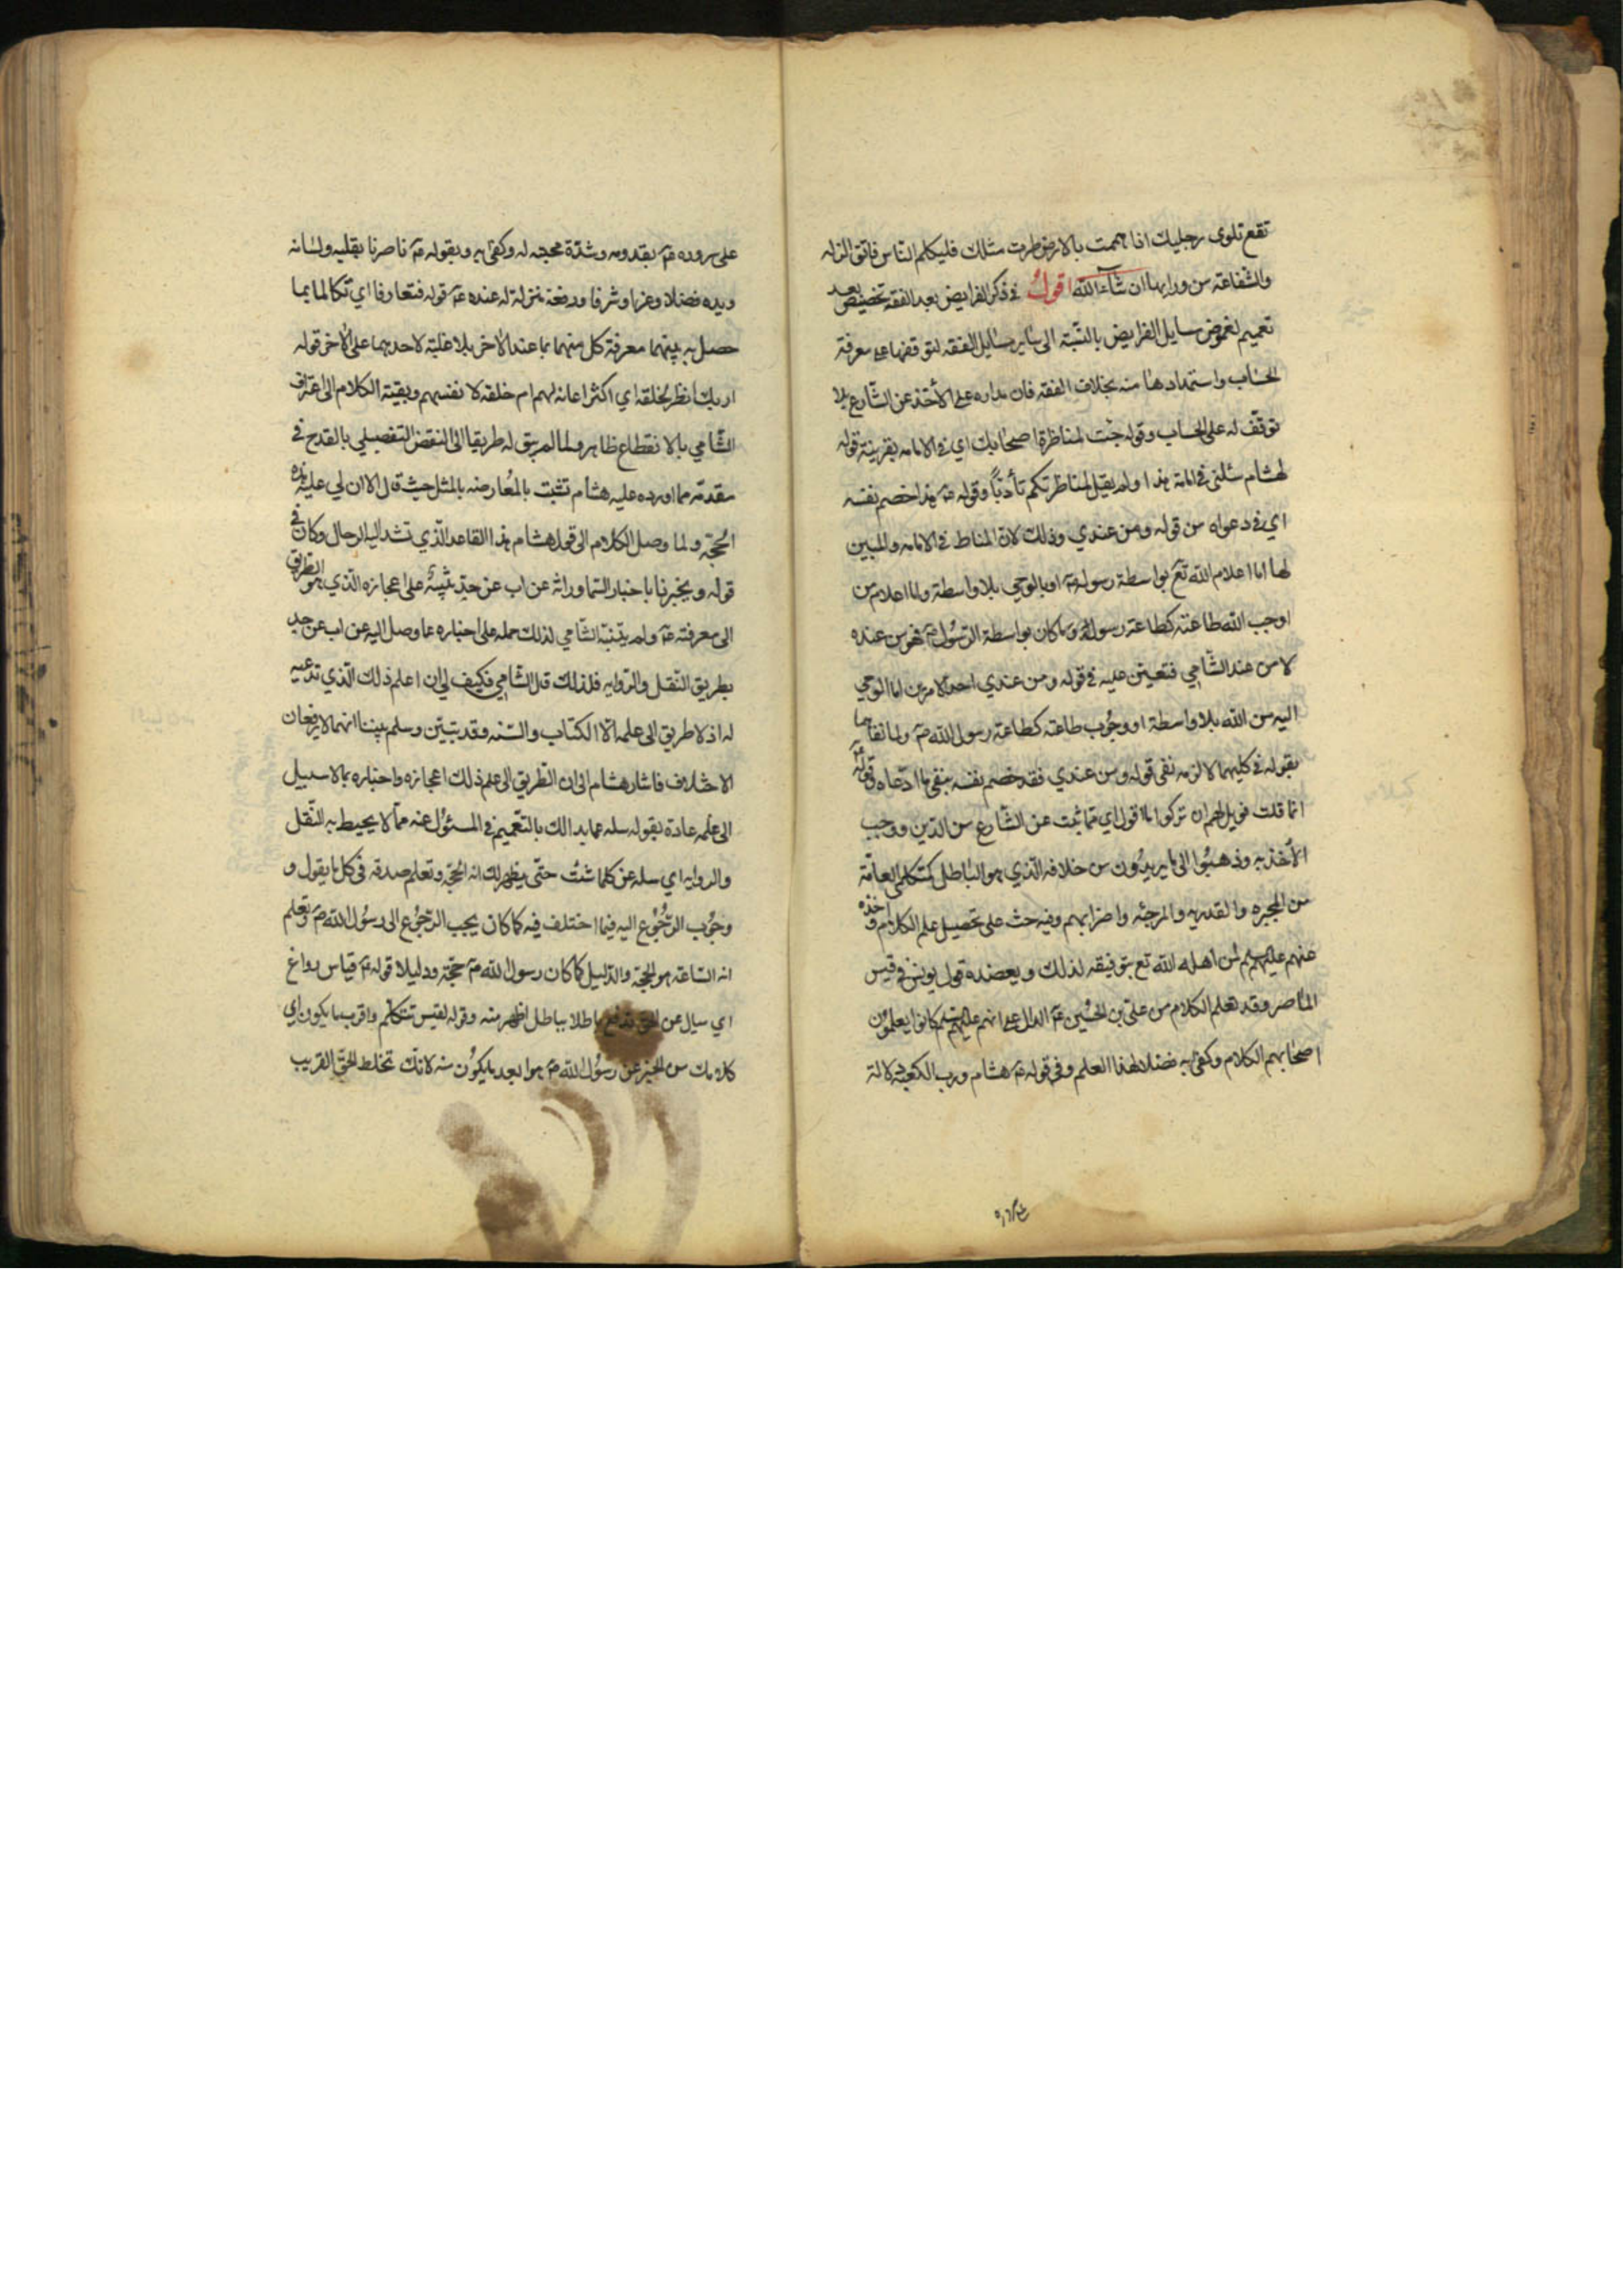 تقع تلوى رجليك اذا هممت بالارض طرت مثلك فليكلم الناس فاتق الزله
والشفاعة من ورائها ان شاء الله اقول في ذكر الفرايض بعد الفقه تخصيص بعد
تعميم لغموض مسايل الفرايض بالنسبة الى ساير مسايل الفقه لتوقفها على معرفة
الحساب واستمدادها منه بخلاف الفقه فان مداره على الأخذ عن الشارع بلا
توقف له على الحساب وقوله جئت لمناظرة اصحابك اي في الامامه بقرينة قوله
لهشام سلني في امامة هذا ولم يقل لمناظرتكم تأدبًا وقوله هذا خصم نفسه
اي في دعواه من قوله ومن عندي وذلك لان المناط في الامامه والمبين
لها اما اعلام الله تع بواسطة رسوله ص او بالوحي بلا واسطة واما اعلام من
اوجب الله طاعته كطاعة رسوله وما كان بواسطة الرسول ص فهو من عنده
لا من عند الشامي فتعين عليه في قوله ومن عندي احد الامرين اما الوحي
اليه من الله بلا واسطة او وجوب طاعته كطاعة رسول الله ص ولما نفاهما
بقوله في كليهما لا لزمه نفي قوله ومن عندي فقد خصم نفسه بنفي ما ادعاه وقوله
انما قلت فويل لهم ان تركوا ما اقول اي مما ثبت عن الشارع من الدين ووجب
الأخذ به وذهبوا الى ما يريدون من خلافه الذي هو الباطل كمتكلمي العامة
من المجبره والقدريه والمرجئه واضرابهم وفيه حث على تحصيل علم الكلام واخذه
عنهم عليهم السلم لمن اهله الله تع بتوفيقه لذلك ويعضده قول يونس في قيس
الماصر وقد تعلم الكلام من علي بن الحسين ع الدال على انهم عليهم السلم كانوا يعلمون
اصحابهم الكلام وكفى به فضلا لهذا العلم وفي قوله ع هشام ورب الكعبة دلالة
على سروره ع بقدومه وشدة محبته له وكفى به وبقوله ع ناصرنا بقلبه ولسانه
ويده فضلا وعزا وشرفا ورفعة منزلة له عنده ع قوله فتعارفا اي تكالما بما
حصل به بينهما معرفة كل منهما بما عند الاخر بلا غلبة لاحدهما على الاخر قوله
اربك انظر لخلقه اي اكثر اعانة لهم ام خلقه لانفسهم وبقية الكلام الى اعتراف
الشامي بالانقطاع ظاهر ولما لم يبق له طريقا الى النقض التفصيلي بالقدح في
مقدمة مما اورده عليه هشام تشبث بالمعارضه بالمثل حيث قال الا ان لي عليه هذه
الحجة ولما وصل الكلام الى قول هشام هذا القاعد الذي تشد اليه الرحال وكان في
قوله ويخبرنا باخبار السما وراثة عن اب عن جد تنبيه على اعجازه الذي هو الطريق
الى معرفته ع ولم يتنبه الشامي لذلك حمله على اخباره عما وصل اليه عن اب عن جد
بطريق النقل والروايه فلذلك قال الشامي فكيف لي ان اعلم ذلك الذي تدعيه
له اذ لا طريق الى علمه الا الكتاب والسنه وقد تبين وسلم بيننا انهما لا يرفعان
الاختلاف فاشار هشام الى ان الطريق الى علم ذلك اعجازه واخباره بما لا سبيل
الى علمه عادة بقوله سله عما بدا لك بالتعميم في المسئول عنه مما لا يحيط به النقل
والروايه اي سله عن كلما شئت حتى يظهر لك انه الحجة وتعلم صدقه في كل ما يقول و
وجوب الرجوع اليه فيما اختلف فيه كما كان يجب الرجوع الى رسول الله ص وتعلم
انه الساعة هو الحجة والدليل كما كان رسول الله ص حجة ودليلا قوله ع قياس رواغ
اي ميال عن الحق تدفع باطلا بباطل اظهر منه وقوله لقيس تتكلم واقرب ما يكون اي
كلامك من الخبر عن رسول الله ص هو ابعد ما يكون منه لانك تخلط الحق القريب